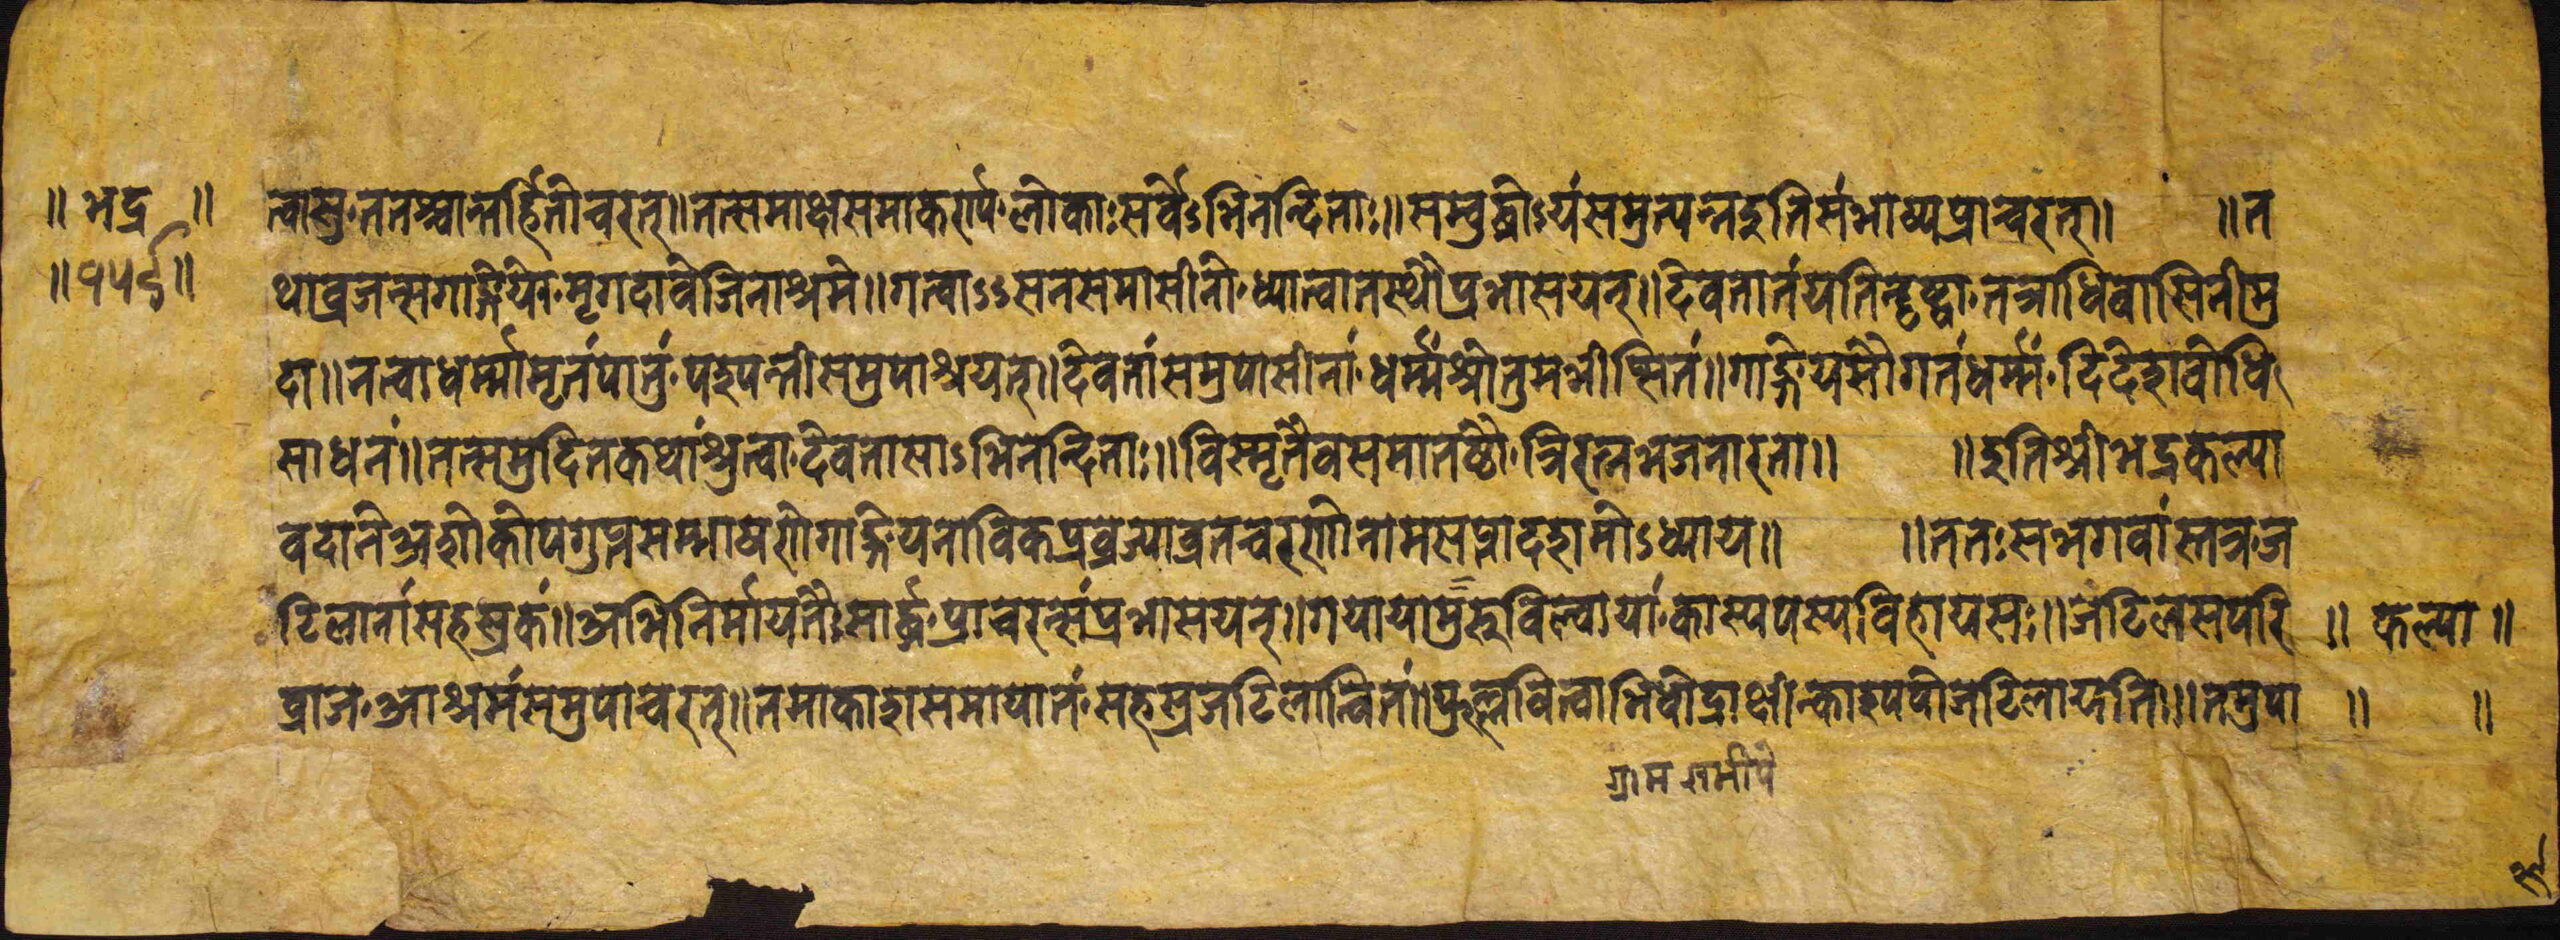 ॥ भद्र ॥ त्वाशु ततश्चान्तर्हितोचरत्॥तत्समाक्षसमाकर्ण्य लोकाः सर्वेऽभिनन्दिताः॥सम्बुद्धोऽयंसमुत्पन्नइतिसंभाष्यप्राच्चरत्॥ ॥त
॥१५९॥ थाव्रजन्सगाङ्गेयो मृगदावेजिनाश्रमे॥गत्वाऽऽसनसमासीनो ध्यात्वातस्थौप्रभासयन्॥देवतातंयतिन्दृष्ट्वा तत्राधिवासिनीमु
दा॥नत्वाधर्म्मामृतंपातुं पद्मपत्नीसमुपाश्रयत्॥देवतांसमुपासीनां धर्म्मंश्रोतुमभीप्सितं॥गाङ्गेयसौगतंधर्म्मं दिदेशबोधि
साधनं॥तत्समुदितकथांश्रुत्वा देवतासाऽभिनन्दिताः॥विस्मृतैवसमातष्ठौ त्रिरत्नभजनारता॥ ॥इतिश्रीभद्रकल्पा
वदानेअशोकोपगुप्तसम्भाषणेगाङ्गेयनाविकप्रव्रज्याव्रतचरणोनामसप्तादशमोऽध्याय॥ ॥ततःसभगवांस्तत्र ज
टिलानांसहस्रकं॥अभिनिर्मायतैःसार्द्धं प्राचरन्संप्रभासयन्॥गयायामुरुविल्वायां कास्यपस्यविहायसः॥जटिलसपरि ॥ कल्पा ॥
व्राज आश्रमंसमुपाचरत्॥तमाकाशसमायातं सहस्रजटिलान्वितं॥फुल्लविल्वाभिधोद्राक्षीन्काश्यपोजटिलोयतिः॥तमुपा ॥ ॥
ग्राम समीपे